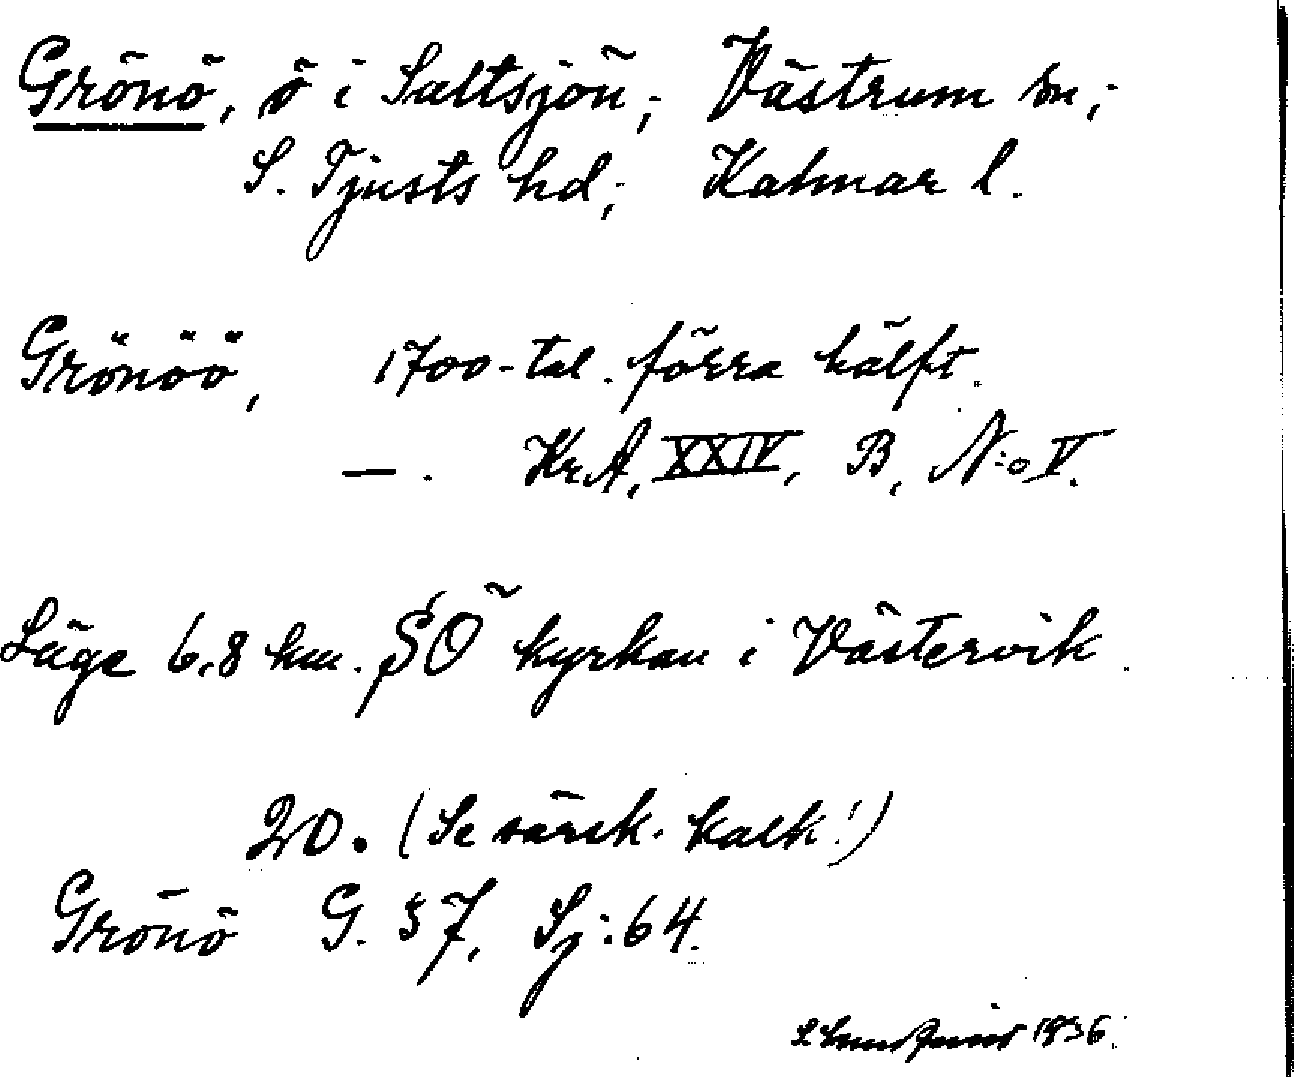 Grönö, ö i Saltsjön; Västrum sn;
S. Tjusts hd; Kalmar l.
Grönöö, 1700-tal. förra hälft.
—. Kr.A, XXIV, B, N:o V.
Läge 6,8 km. SO kyrkan i Västervik.
20. (Se särsk. kalk!)
Grönö G. 57, Sj:64.
1936.